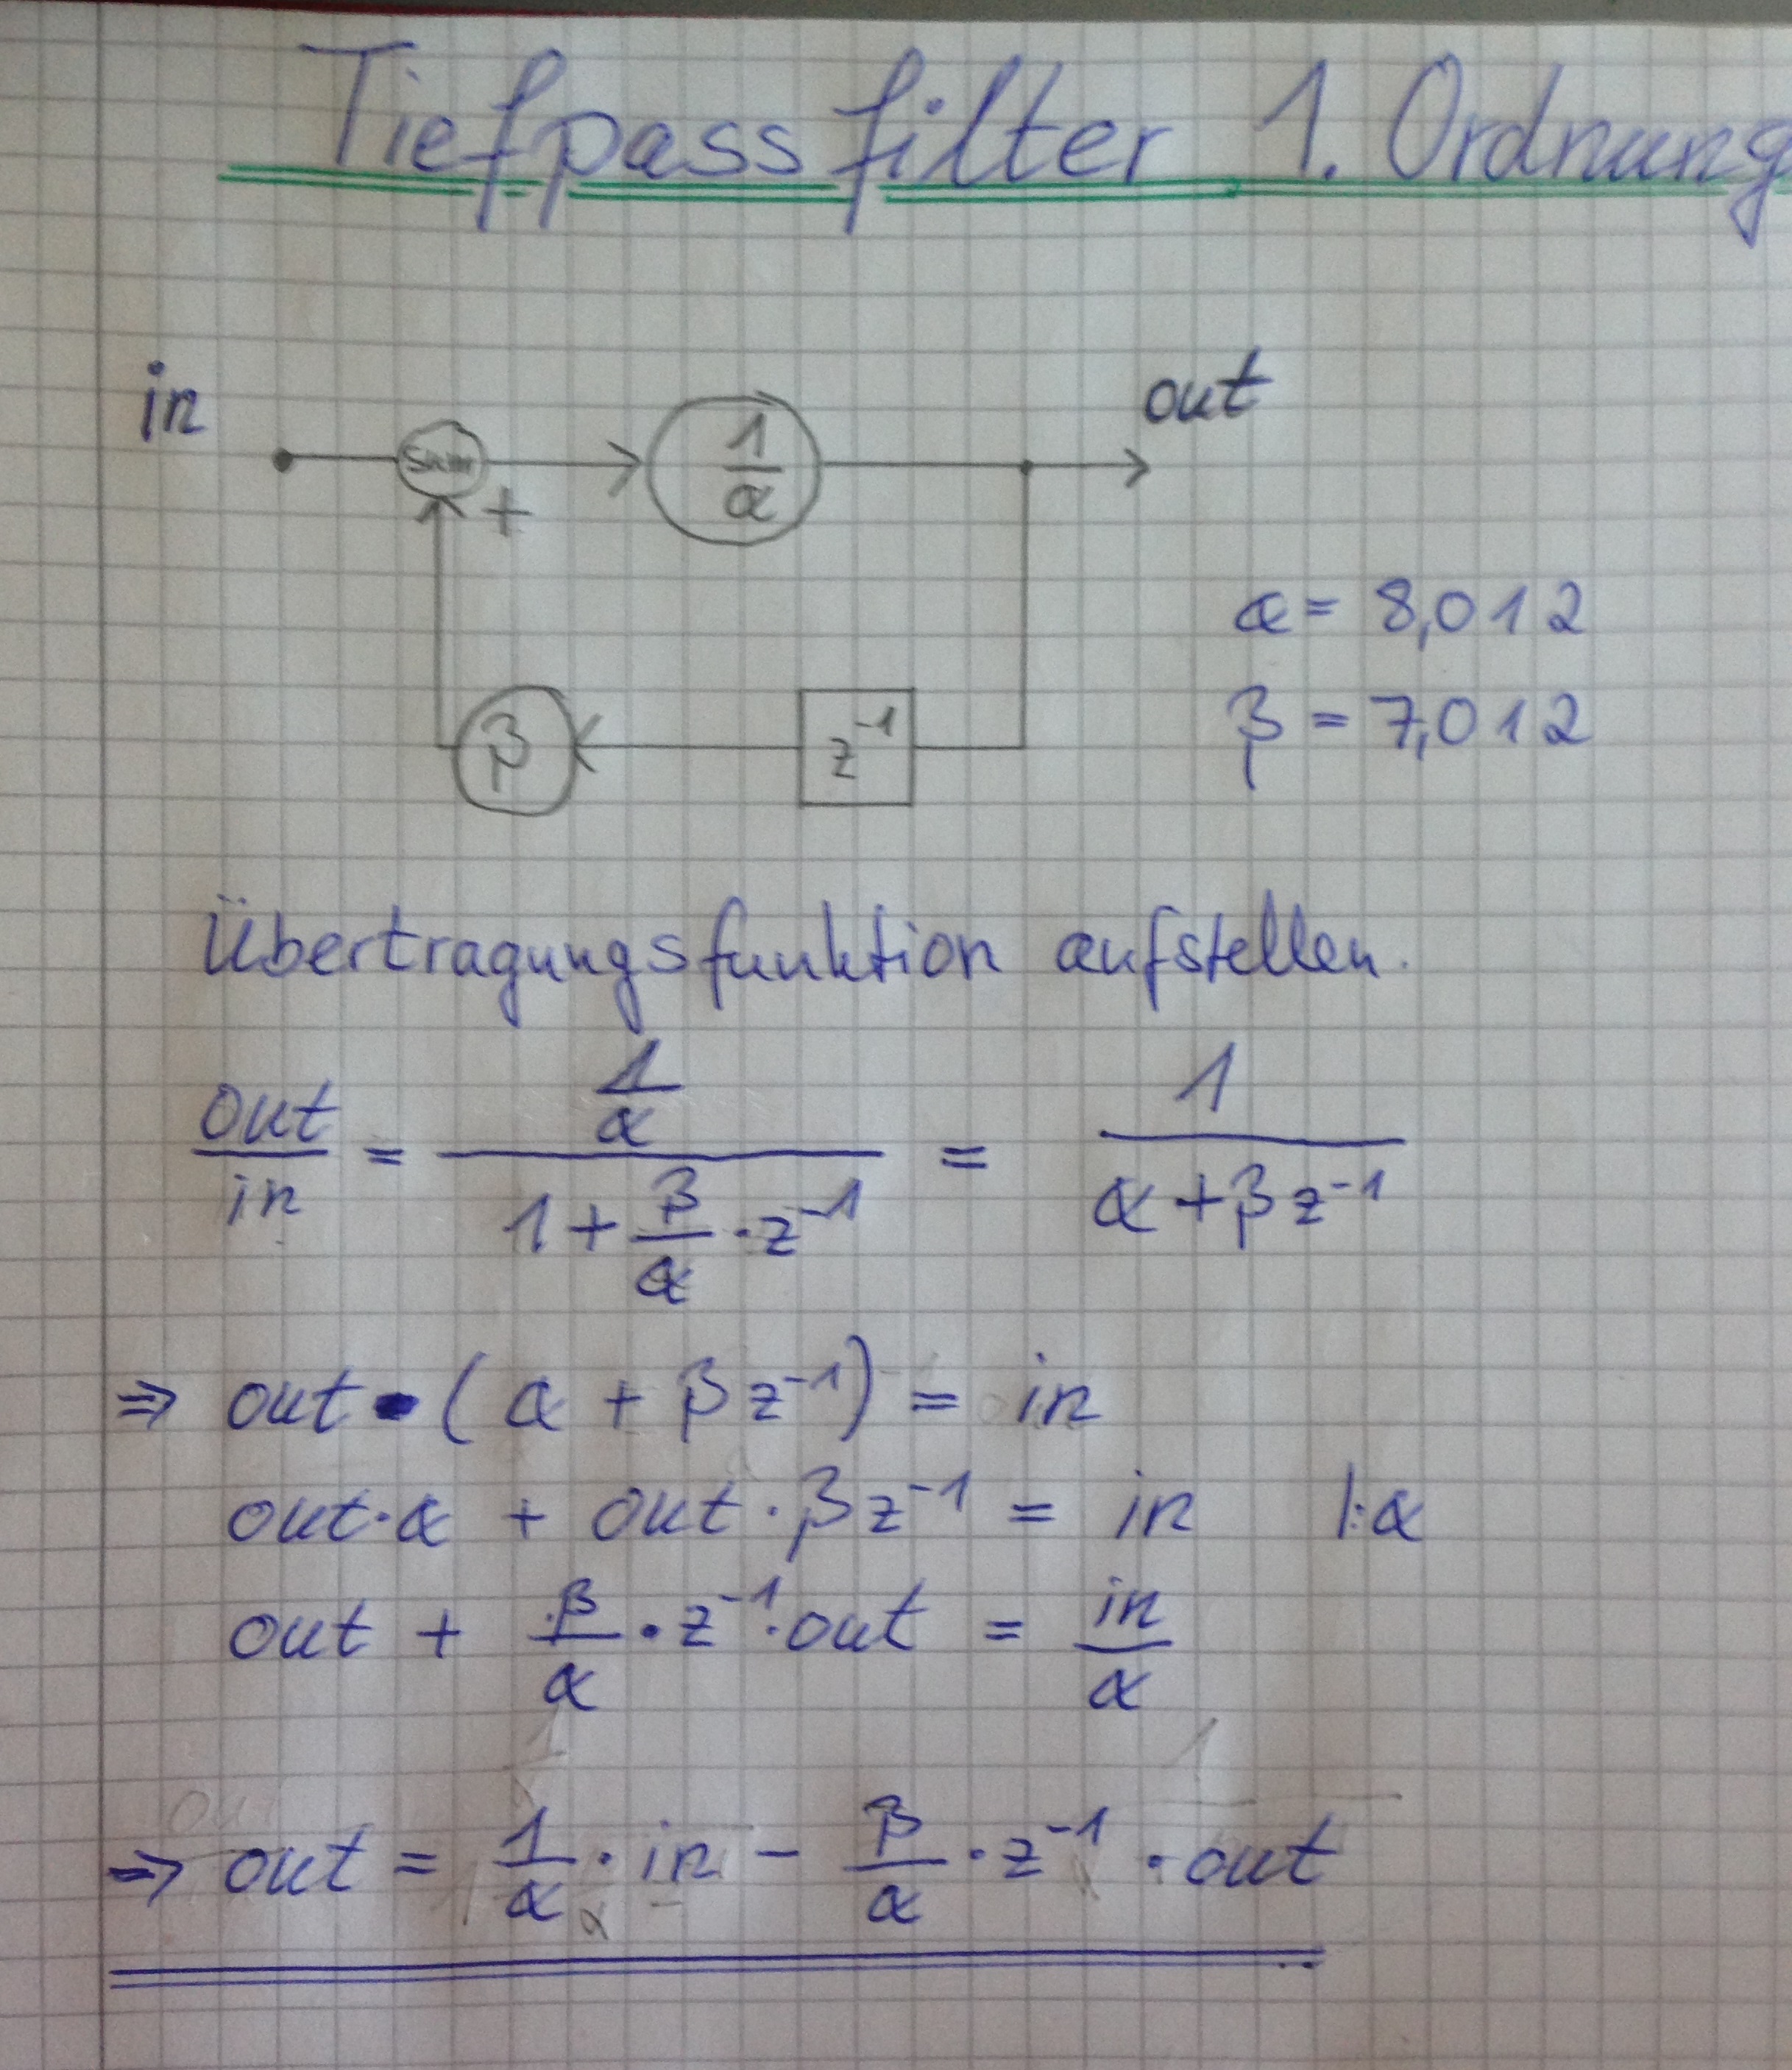 Tiefpassfilter 1. Ordnung
in
out
Sum
+
1/α
α = 8,012
β = 7,012
β
z⁻¹
Übertragungsfunktion aufstellen.
out/in = (1/α)/(1 + β/α · z⁻¹) = 1/(α + β z⁻¹)
⇒ out · (α + β z⁻¹) = in
out · α + out · β z⁻¹ = in |:α
out + β/α · z⁻¹ · out = in/α
⇒ out = 1/α · in - β/α · z⁻¹ · out